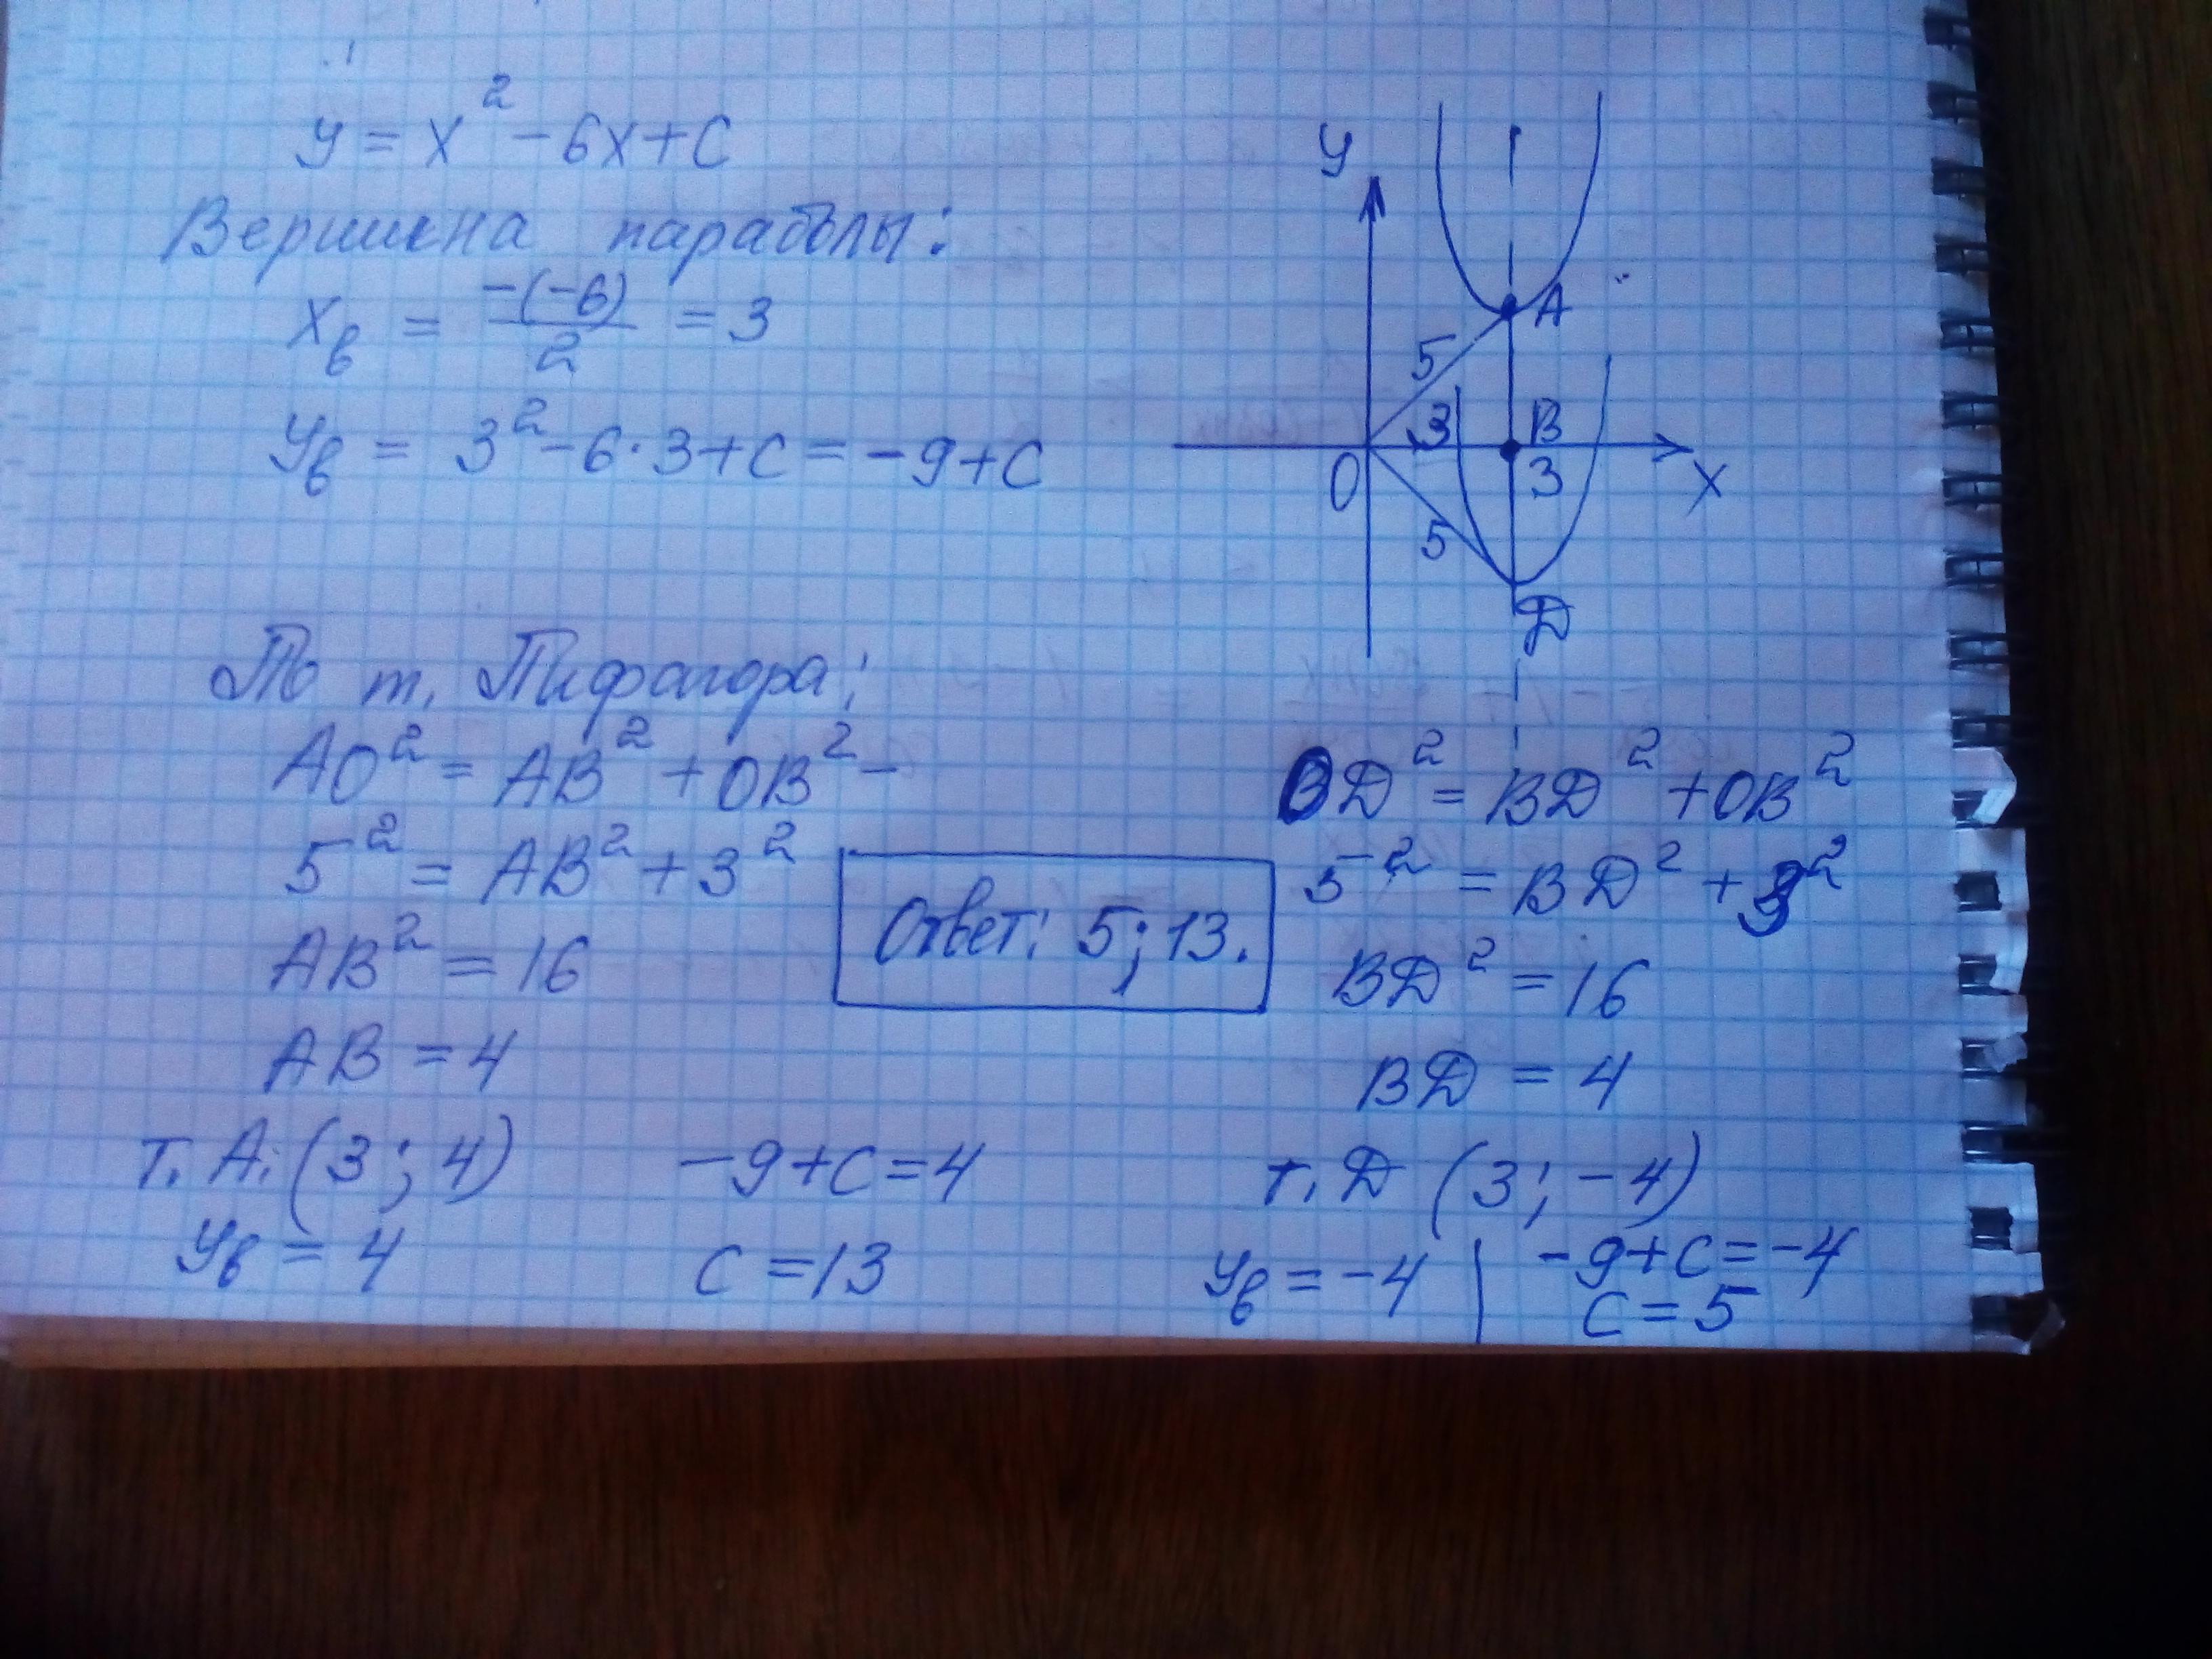 y = x² - 6x + c
Вершина параболы:
xв = -(-6)/2 = 3
yв = 3² - 6·3 + c = -9 + c
y
A
5
3
B
O
3
x
5
D
По т. Пифагора:
AO² = AB² + OB² -
5² = AB² + 3²
AB² = 16
AB = 4
т. A. (3; 4)
yв = 4
-9 + c = 4
c = 13
Ответ: 5; 13.
OD² = BD² + OB²
5² = BD² + 3²
BD² = 16
BD = 4
т. D (3; -4)
yв = -4 | -9 + c = -4
c = 5